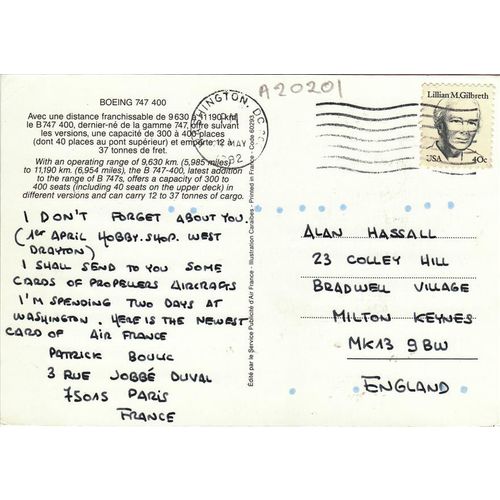 A20201
WASHINGTON, DC
PM
12 MAY
Lillian M. Gilbreth
USA 40c
BOEING 747 400
Avec une distance franchissable de 9 630 à 11 190 km,
le B 747 400, dernier-né de la gamme 747, offre suivant
les versions, une capacité de 300 à 400 places
(dont 40 places au pont supérieur) et emporte 12 à
37 tonnes de fret.
With an operating range of 9,630 km. (5,985 miles)
to 11,190 km. (6,954 miles), the B 747-400, latest addition
to the range of B 747s, offers a capacity of 300 to
400 seats (including 40 seats on the upper deck) in
different versions and can carry 12 to 37 tonnes of cargo.
I DON'T FORGET ABOUT YOU.
(1st APRIL HOBBY.SHOP. WEST
DRAYTON)
I SHALL SEND TO YOU SOME
CARDS OF PROPELLERS AIRCRAFTS
I'M SPENDING TWO DAYS AT
WASHINGTON. HERE IS THE NEWEST
CARD OF AIR FRANCE
PATRICK BOULIC
3 RUE JOBBÉ DUVAL
75015 PARIS
FRANCE
Édité par le Service Publicité d'Air France - Illustration Caraibes - Printed in France - Code 60093
ALAN HASSALL
23 COLLEY HILL
BRADWELL VILLAGE
MILTON KEYNES
MK13 9BW
ENGLAND